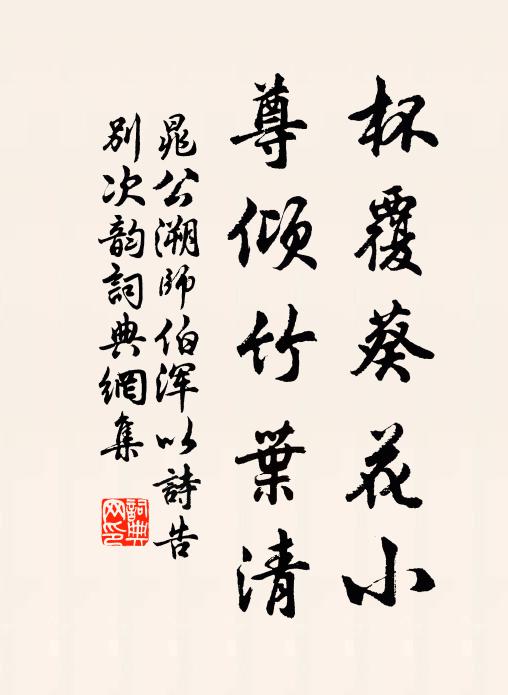 杯覆葵花小
尊傾竹葉清
晁公溯師伯渾以詩告
別次韵詞典網集
詞典
网印